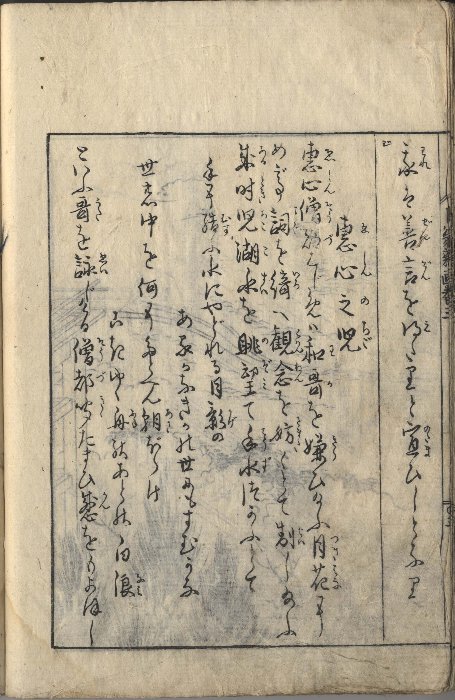 我は善言を得たりと宣ひしとなり
恵心之児
恵心僧都はじめは和哥を嫌ひ給ふ月花に
めで詞を綺へ観念を妨ぐとて制し給ふ
或時児湖水を眺望して手水つかふとて
手に結ぶ水にやどれる月影の
あるかなきかの世にもすむかな
世の中を何にたとへん朝ぼらけ
こぎゆく舟のあとの白浪
といふ哥を詠じける僧都めでたまひ